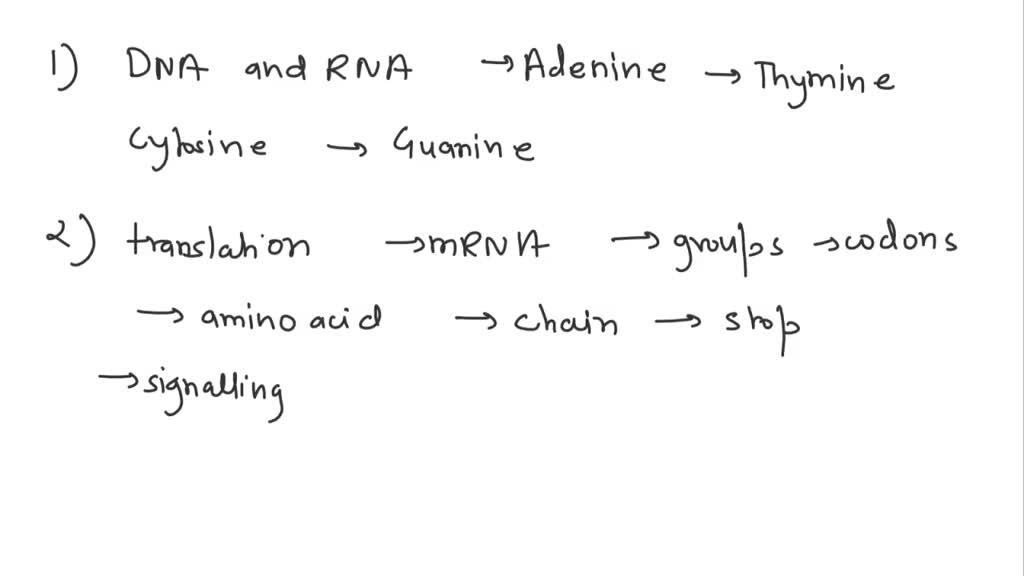 1) DNA and RNA → Adenine → Thymine
Cytosine → Guanine
2) translation → mRNA → groups → codons
→ amino acid → chain → stop
→ signalling